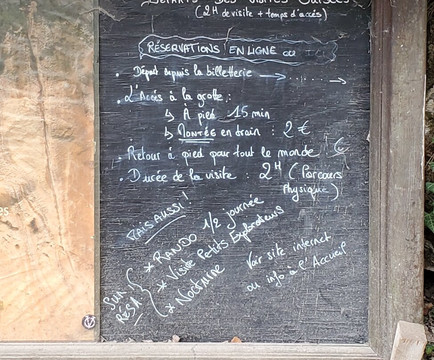 DÉPARTS DES VISITES GUIDÉES
(2H de visite + temps d'accès)
RÉSERVATIONS EN LIGNE ou
• Départ depuis la billetterie → ....→
• L'Accès à la grotte :
↳ A pied 15 min
↳ MONTÉE en train : 2 €
• Retour à pied pour tout le monde
• Durée de la visite : 2H (Parcours
Physique)
MAIS AUSSI !
SUR RÉSA
* RANDO 1/2 journée
* Visite Petits Explorateurs
* NOCTURNE
Voir site internet
ou info à l'Accueil